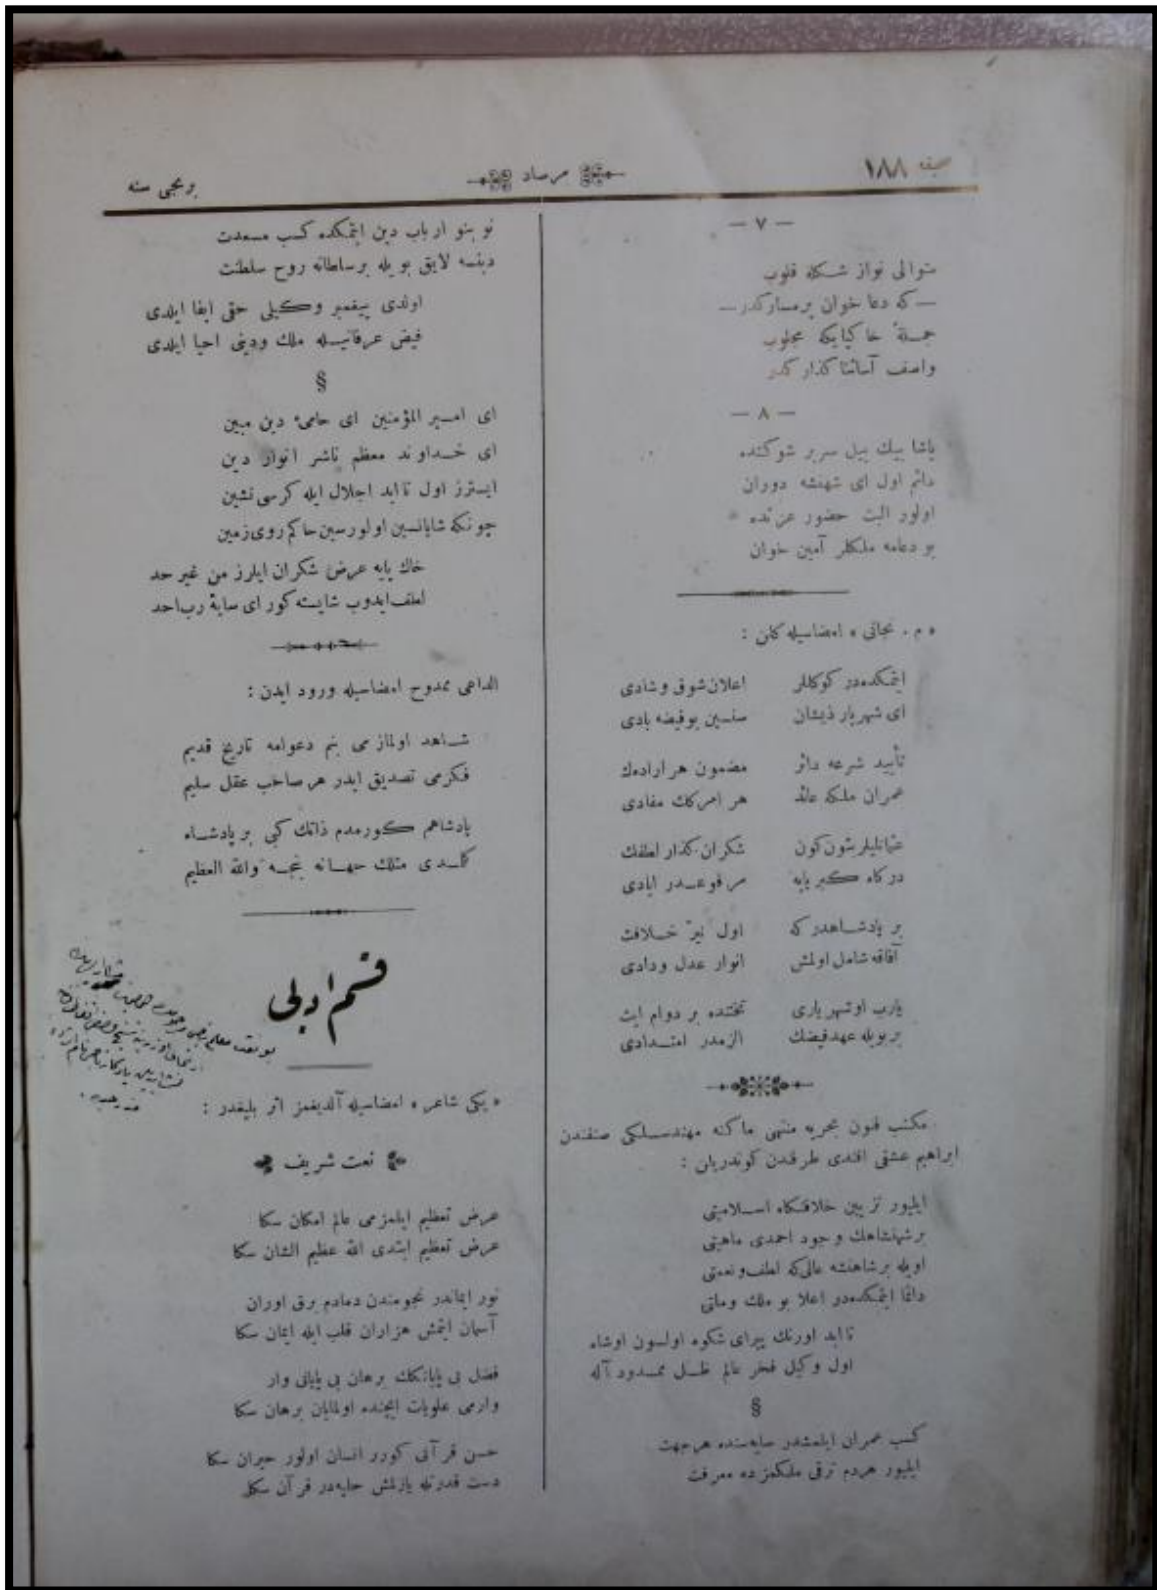 صحیفه ١٨٨
مرصاد
برنجی سنه
— ٧ —
متوالی نواز شکله قلوب
— که دعا خوان برمسارکدر —
جملهٔ خاکپایکه مجلوب
واصف آستانتا کذارکدر
— ٨ —
یاشا بیك ییل سریر شوکتده
دائم اول ای شهنشه دوران
اولور البت حضور عزتده
بو دعامه ملکلر آمین خوان
« م . نجاتی » امضاسیله کلن :
ایتمکده‌در کوکللر اعلان شوق و شادی
ای شهریار ذیشان سنسین بوفیضه بادی
تأیید شرعه دائر مضمون هر اراده‌ك
عمران ملکه عائد هر امرکك مفادی
عثمانلیلر بتون کون شکران کذار لطفك
درکاه کبریایه مرفوعدر ایادی
بر پادشاهدر که اول نیر خلافت
آفاقه شامل اولمش انوار عدل و دادی
یارب اوشهریاری تختنده بر دوام ایت
بربویله عهدفیضك الزمدر امتدادی
مکتب فنون بحریه منتهی ماکنه مهندسلکی صنفندن
ابراهیم عشقی افندی طرفندن کوندریلن :
ایلیور تزیین خلافتکاه اسلامیتی
برشهنشاهك وجود احمدی ماهیتی
اویله برشاهنشه عالی‌که لطف و نعمتی
دائما ایتمکده‌در اعلا بو ملك و ملتی
تا ابد اورنك پیرای شکوه اولسون اوشاه
اول وکیل فخر عالم ظل ممدود آله
§
کسب عمران ایلمشدر سایه‌سنده هرجهت
ایلیور هردم ترقی ملکمزده معرفت
نو بنو ارباب دین ایتمکده کسب مسعدت
دینسه لایق بویله برسلطانه روح سلطنت
اولدی پیغمبر وکیلی حقی ایفا ایلدی
فیض عرفانیله ملك ودینی احیا ایلدی
§
ای امیر المؤمنین ای حامیٔ دین مبین
ای خداوند معظم ناشر انوار دین
ایسترز اول تا ابد اجلال ایله کرسی نشین
چونکه شایانسین اولورسین حاکم روی زمین
خاك پایه عرض شکران ایلرز من غیر حد
لطف ایدوب شایسته کور ای سایهٔ رب احد
الداعی ممدوح امضاسیله ورود ایدن :
شاهد اولمازمی بنم دعوامه تاریخ قدیم
فکرمی تصدیق ایدر هر صاحب عقل سلیم
پادشاهم کورمدم ذاتك کبی بر پادشاه
کلمدی مثلك جهانه نجه والله العظیم
قسم ادبی
« یکی شاعر » امضاسیله آلدیغمز اثر بلیغدر :
نعت شریف
عرض تعظیم ایلمزمی عالم امکان سکا
عرض تعظیم ایتدی الله عظیم الشان سکا
نور ایماندر نجومندن دمادم برق اوران
آسمان ایتمش هزاران قلب ایله ایمان سکا
فضل بی پایانکك برهان بی پایانی وار
وارمی علویات ایچنده اولمایان برهان سکا
حسن قرآنی کورر انسان اولور حیران سکا
دست قدرتله یازلمش حلیه‌در قرآن سکا